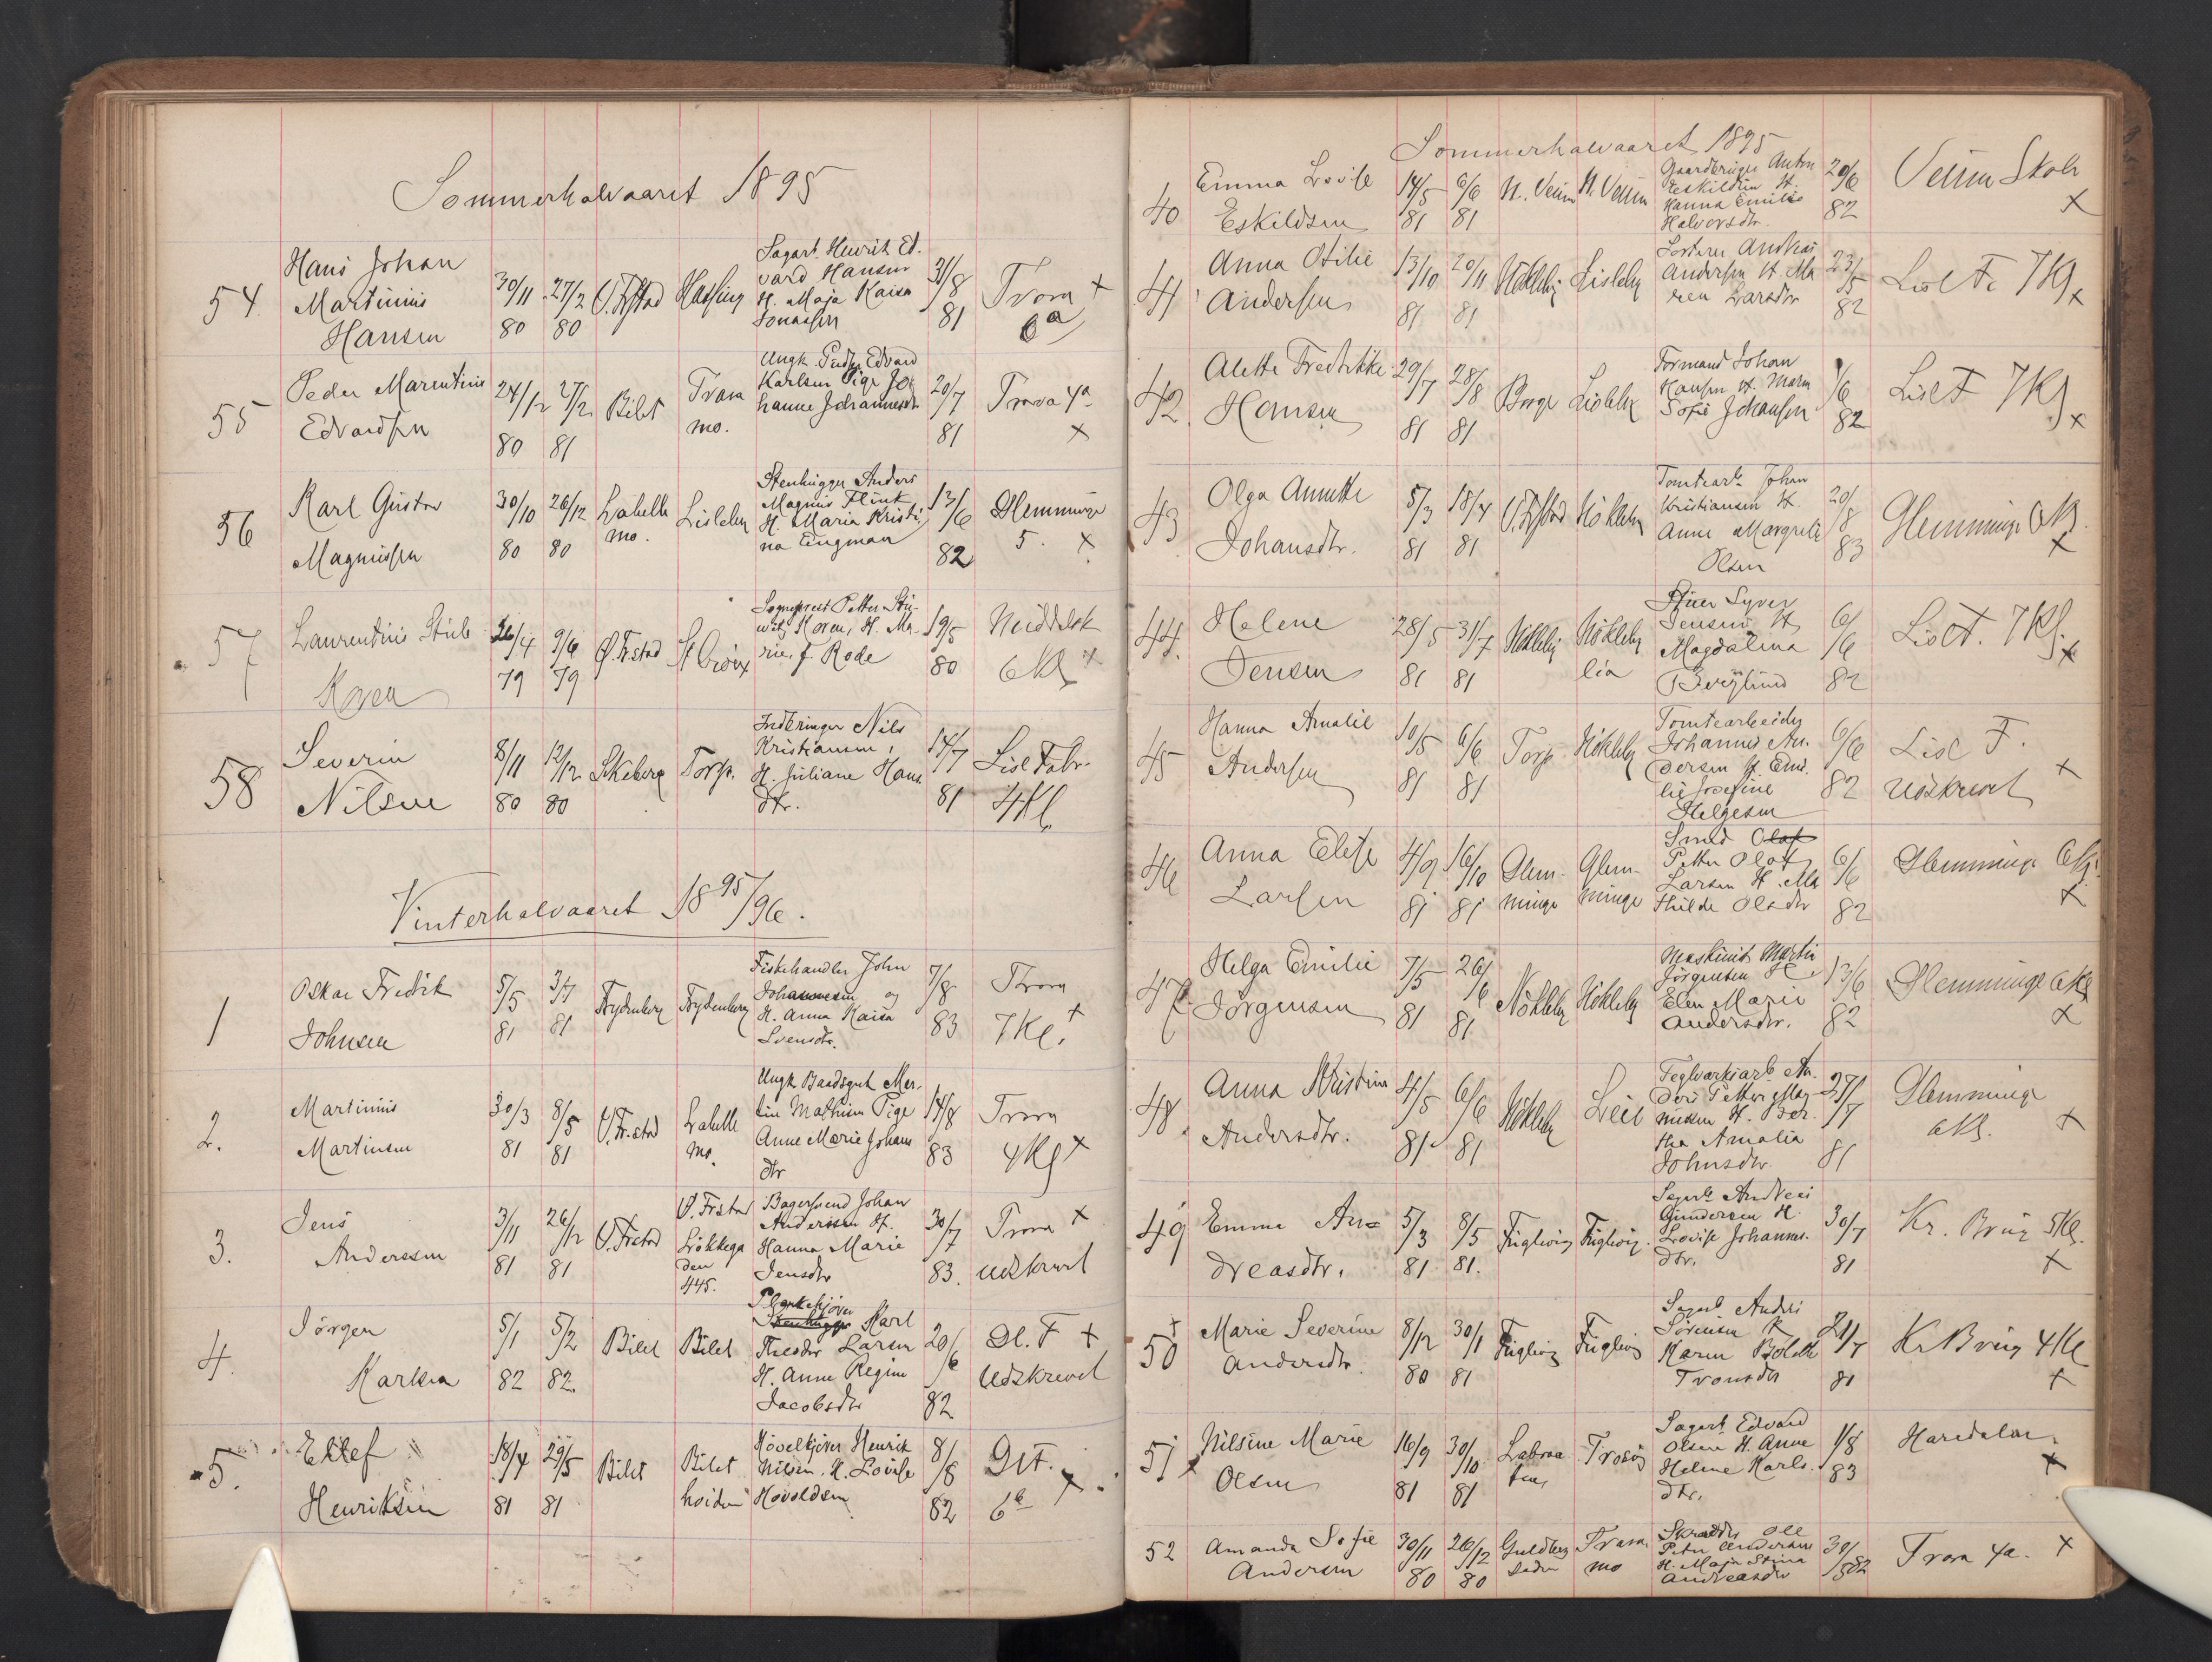 Sommerhalvaaret 1895
54. Hans Johan Martinius Hansen 30/11 80 27/2 80 V. Fstad Sagarb. Henrik Ed-
vard Hansen
H. Maja Kaisa
Jonassen 31/8 81 Trara 6a x
55 Peder Marentius Edvardsen 24/12 80 27/2 81 Bilet Trara
mo. Ungk. Edvard
Karlsen Pige Jo-
hanne Johannesdt 20/7 81 Trara 4a x
56 Karl Gustav Magnussen 30/10 80 26/12 80 Labella
mo. Lisleby Stenhugger Anders
Magnus Flink
H. Maria Kristi-
na Engman 13/6 82 Glemminge 5. x
57 Laurentius Stub Koren 26/4 79 9/6 79 Ø. Fr.stad St. Croix Sogneprest Petter Stu-
witz Koren, H. Ma-
rie, f. Rode 19/5 80 Middelsk 6 Kl x
58 Severin Nilsen 8/11 80 12/12 80 Skeberg Torp. Indbringer Nils
Kristiansen,
H. Juliane Hans
dtr. 14/7 81 Lisl Fabr. 4 Kl.
Vinterhalvaaret 1895/96.
1 Oskar Fredrik Johnsen 5/5 81 3/7 81 Frydenberg Frydenberg Fiskehandler John
Johannesen og
H. Anna Kaisa
Svensdtr. 7/8 83 Trara 7 Kl. x
2. Martinius Martinsen 30/3 81 8/5 81 V. Fr.stad Labella
mo. Ungk Baadsgut Mar-
tin Mathisen Pige
Anne Marie Johans
dtr 14/8 83 Trara 4 Kl x
3. Jens Anderssen 3/11 81 26/12 81 V. Frstad V. Frstad
Løkkega
den
445. Bagersvend Johan
Anderssen H.
Hanna Marie
Jensdtr 30/7 83. Trara x
Udskrevet
4. Jörgen Karlsen 5/1 82 5/2 82. Bilet Bilet Plankekjörer
Stenhugger Karl
Theodor Larsen
H. Anne Regine
Jacobsdtr 20/6 82 Gl. F x
Udskrevet
5. Ellef Henriksen 18/4 81 29/5 81 Bilet Bilet
hoiden Hövelkjörer Henrik
Nilsen. H. Lovise
Hovoldsen 8/8 82 6b x
Sommerhalvaaret 1895
40 Emma Lovise Eskildsen 14/5 81 6/6 81 N. Veum N. Veum Gaardbruger Anton
Eskildsen H.
Hanna Emilie
Halvorsdtr. 20/6 82 Veum Skole x
41 Anna Otilie Andersen 13/10 81 20/11 81 Nökleby Lisleby Andreas
Andersen H. Ma
ren Larsdtr 23/5 82 Lisl F. 7 Kl x
42. Alette Fredrikke Hansen 29/7 81 28/8 81 Borge Lisleby Formand Johan
Hansen H. Maren
Sofie Johansen 1/6 82 Lisl F 7 Kl x
43 Olga Annette Johansdtr. 5/3 81 18/4 81 V. Fstad Nökleby Tomtearb. Johan
Kristiansen H.
Anne Margrete
Olsen 20/8 83 Glemminge 6 Kl. x
44. Helene Jensen 28/5 81 31/7 81 Nökleby Nökleby
lia Syver
Jensen H.
Magdalena
Berglund 6/6 82 Lisl F. 7 Kl. x
45 Hanna Amalie Andersen 10/5 81 6/6 81 Torp Nökleby Tomtearbeider
Johannes An-
dersen H. Emi-
lie Josefine
Helgesen 6/6 82 Lisl F.
Udskrevet x
46 Anna Elise Larsen 4/9 81 16/10 81 Glem-
minge Glem-
minge Smed Olaf
Petter Olaf
Larsen H. Ma
thilde Olsdtr 6/6 82 Glemminge 6 Kl. x
47. Helga Emilie Jörgensen 7/5 81 26/6 81 Nökleby Nökleby Maskinist Martin
Jörgensen H.
Elen Marie
Andersdtr. 13/6 82 Glemminge 6 Kl x
48. Anna Kristine Andersdtr. 4/5 81 6/6 81 Nökleby Leie Teglværksarb. An-
ders Petter Mag-
nussen H. Ber-
tha Amalia
Johnsdtr. 27/7 81 Glemminge
6 Kl. x
49 Emma An=
dreasdtr. 5/3 81 8/5 81. Fuglevig Fuglevig. Sagarb. Andreas
Gundersen H.
Lovise Johannes-
dtr. 30/7 81 Kr. Brug 5 Kl. x
50 Marie Severine Andersdtr. 8/12 80 30/1 81 Fuglevig Fuglevig Sagarb Anders
Sörensen H
Karen Bolette
Tronsdtr 21/7 81 Kr Brug 4 Kl x
51 Nilsine Marie Olsen 16/9 81 30/10 81 Labraa
ten Trosvig Sagarb. Edvard
Olsen H. Anne
Helene Karls-
dtr. 1/8 83 Haredalen x
52 Amanda Sofie Andersen 30/11 80 26/12 80 Guldberg
siden Trara
mo Skredder Ole
Peter Andersen
H. Maja Stina
Andreasdtr 30/5 82 Trara 4a. x